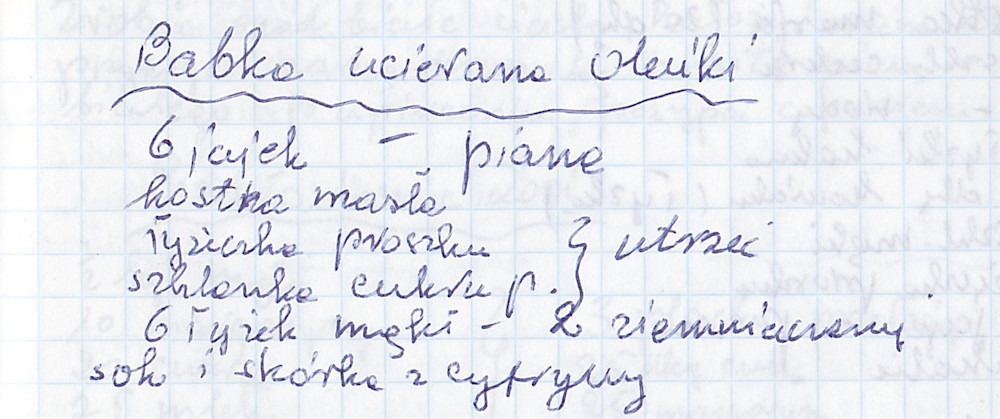 Babka ucierana Oleńki
6 jajek - piana
kostka masła
łyżeczka proszku } utrzeć
szklanka cukru p.
6 łyżek mąki - 2 ziemniaczany
sok i skórka z cytryny